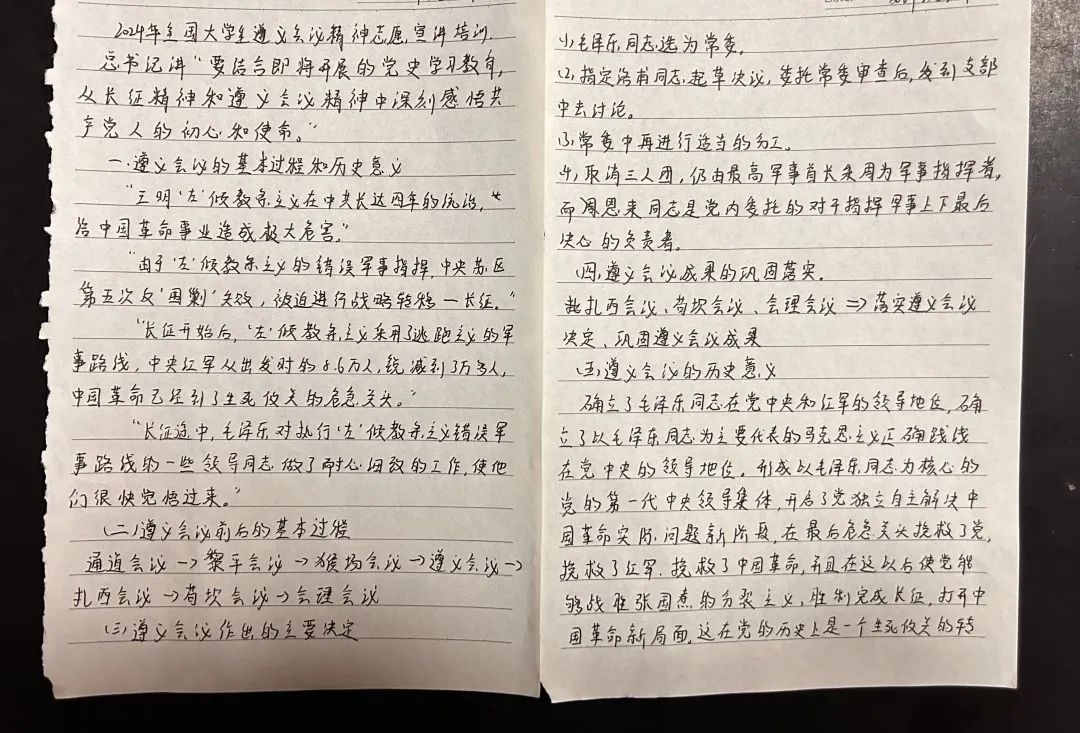 2024年全国大学生遵义会议精神志愿宣讲培训.
总书记讲“要结合即将开展的党史学习教育,
从长征精神和遵义会议精神中深刻感悟共
产党人的初心和使命。”
一.遵义会议的基本过程和历史意义
“王明‘左’倾教条主义在中央长达四年的统治,
给中国革命事业造成极大危害.”
“由于‘左’倾教条主义的错误军事指挥,中央苏区
第五次反‘围剿’失败,被迫进行战略转移—长征.”
“长征开始后,‘左’倾教条主义采用了逃跑主义的军
事路线,中央红军从出发时的8.6万人,锐减到3万多人,
中国革命已经到了生死攸关的危急关头。”
“长征途中,毛泽东对执行‘左’倾教条主义错误军
事路线的一些领导同志做了耐心细致的工作,使他
们很快觉悟过来。”
(二)遵义会议前后的基本过程
通道会议→黎平会议→猴场会议→遵义会议→
扎西会议→苟坝会议→会理会议
(三)遵义会议作出的主要决定
(1)毛泽东同志选为常委.
(2)指定洛甫同志起草决议,委托常委审查后,发到支部
中去讨论。
(3)常委中再进行适当的分工.
(4)取消三人团,仍由最高军事首长朱周为军事指挥者,
而周恩来同志是党内委托的对于指挥军事上下最后
决心的负责者.
(四)遵义会议成果的巩固落实.
扎西会议、苟坝会议、会理会议⇒落实遵义会议
决定、巩固遵义会议成果
(五)遵义会议的历史意义
确立了毛泽东同志在党中央和红军的领导地位,确
立了以毛泽东同志为主要代表的马克思主义正确路线
在党中央的领导地位.形成以毛泽东同志为核心的
党的第一代中央领导集体,开启了党独立自主解决中
国革命实际问题新阶段,在最后危急关头挽救了党,
挽救了红军.挽救了中国革命,并且在这以后使党能
够战胜张国焘的分裂主义,胜利完成长征,打开中
国革命新局面.这在党的历史上是一个生死攸关的转